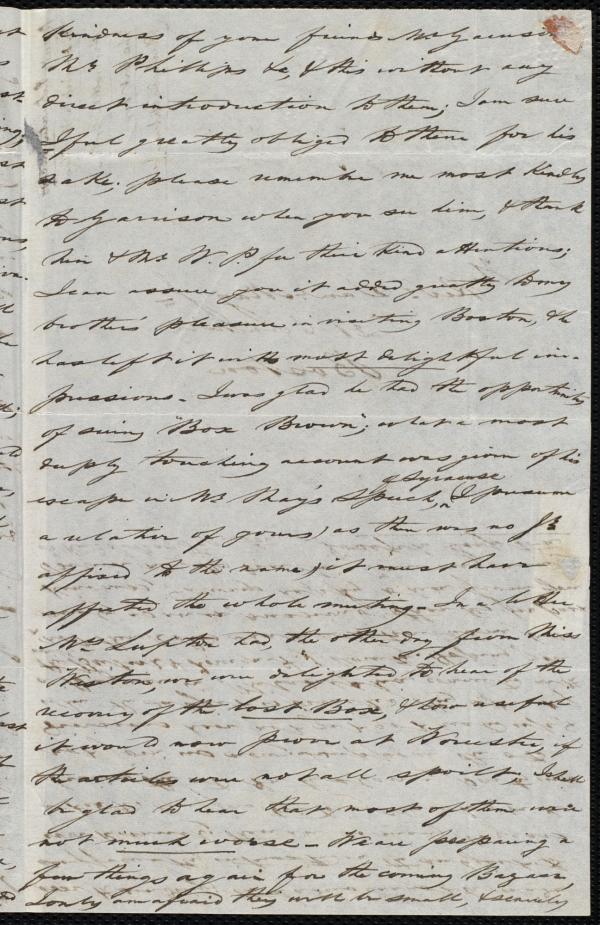 kindness of your friends Mr Garrison
Mr Phillips &c, & this without any
direct introduction to them; I am sure
I feel greatly obliged to them for his
sake. please remember me most kindly
to Garrison when you see him, & thank
him & Mr W. P for their kind attentions;
I can assure you it added greatly to my
brother's pleasure in visiting Boston, & he
has left it with most delightful im-
pressions - I was glad he had the opportunity
of seeing "Box Brown"; what a most
deeply touching account was given of his
escape in Mr May's speech, of Syracuse (I presume
a relation of yours) as there was no Jr
affixed to the name, it must have
affected the whole meeting - In a letter
Mrs Lupton had, the other day from Miss
Weston, we were delighted to hear of the
recovery of the lost Box, & how useful
it would now prove at Worcester, if
the articles were not all spoilt, I shall
be glad to hear that most of them were
not much worse - We are preparing a
few things again for the coming Bazaar,
I only am afraid they will be small, & scarcely